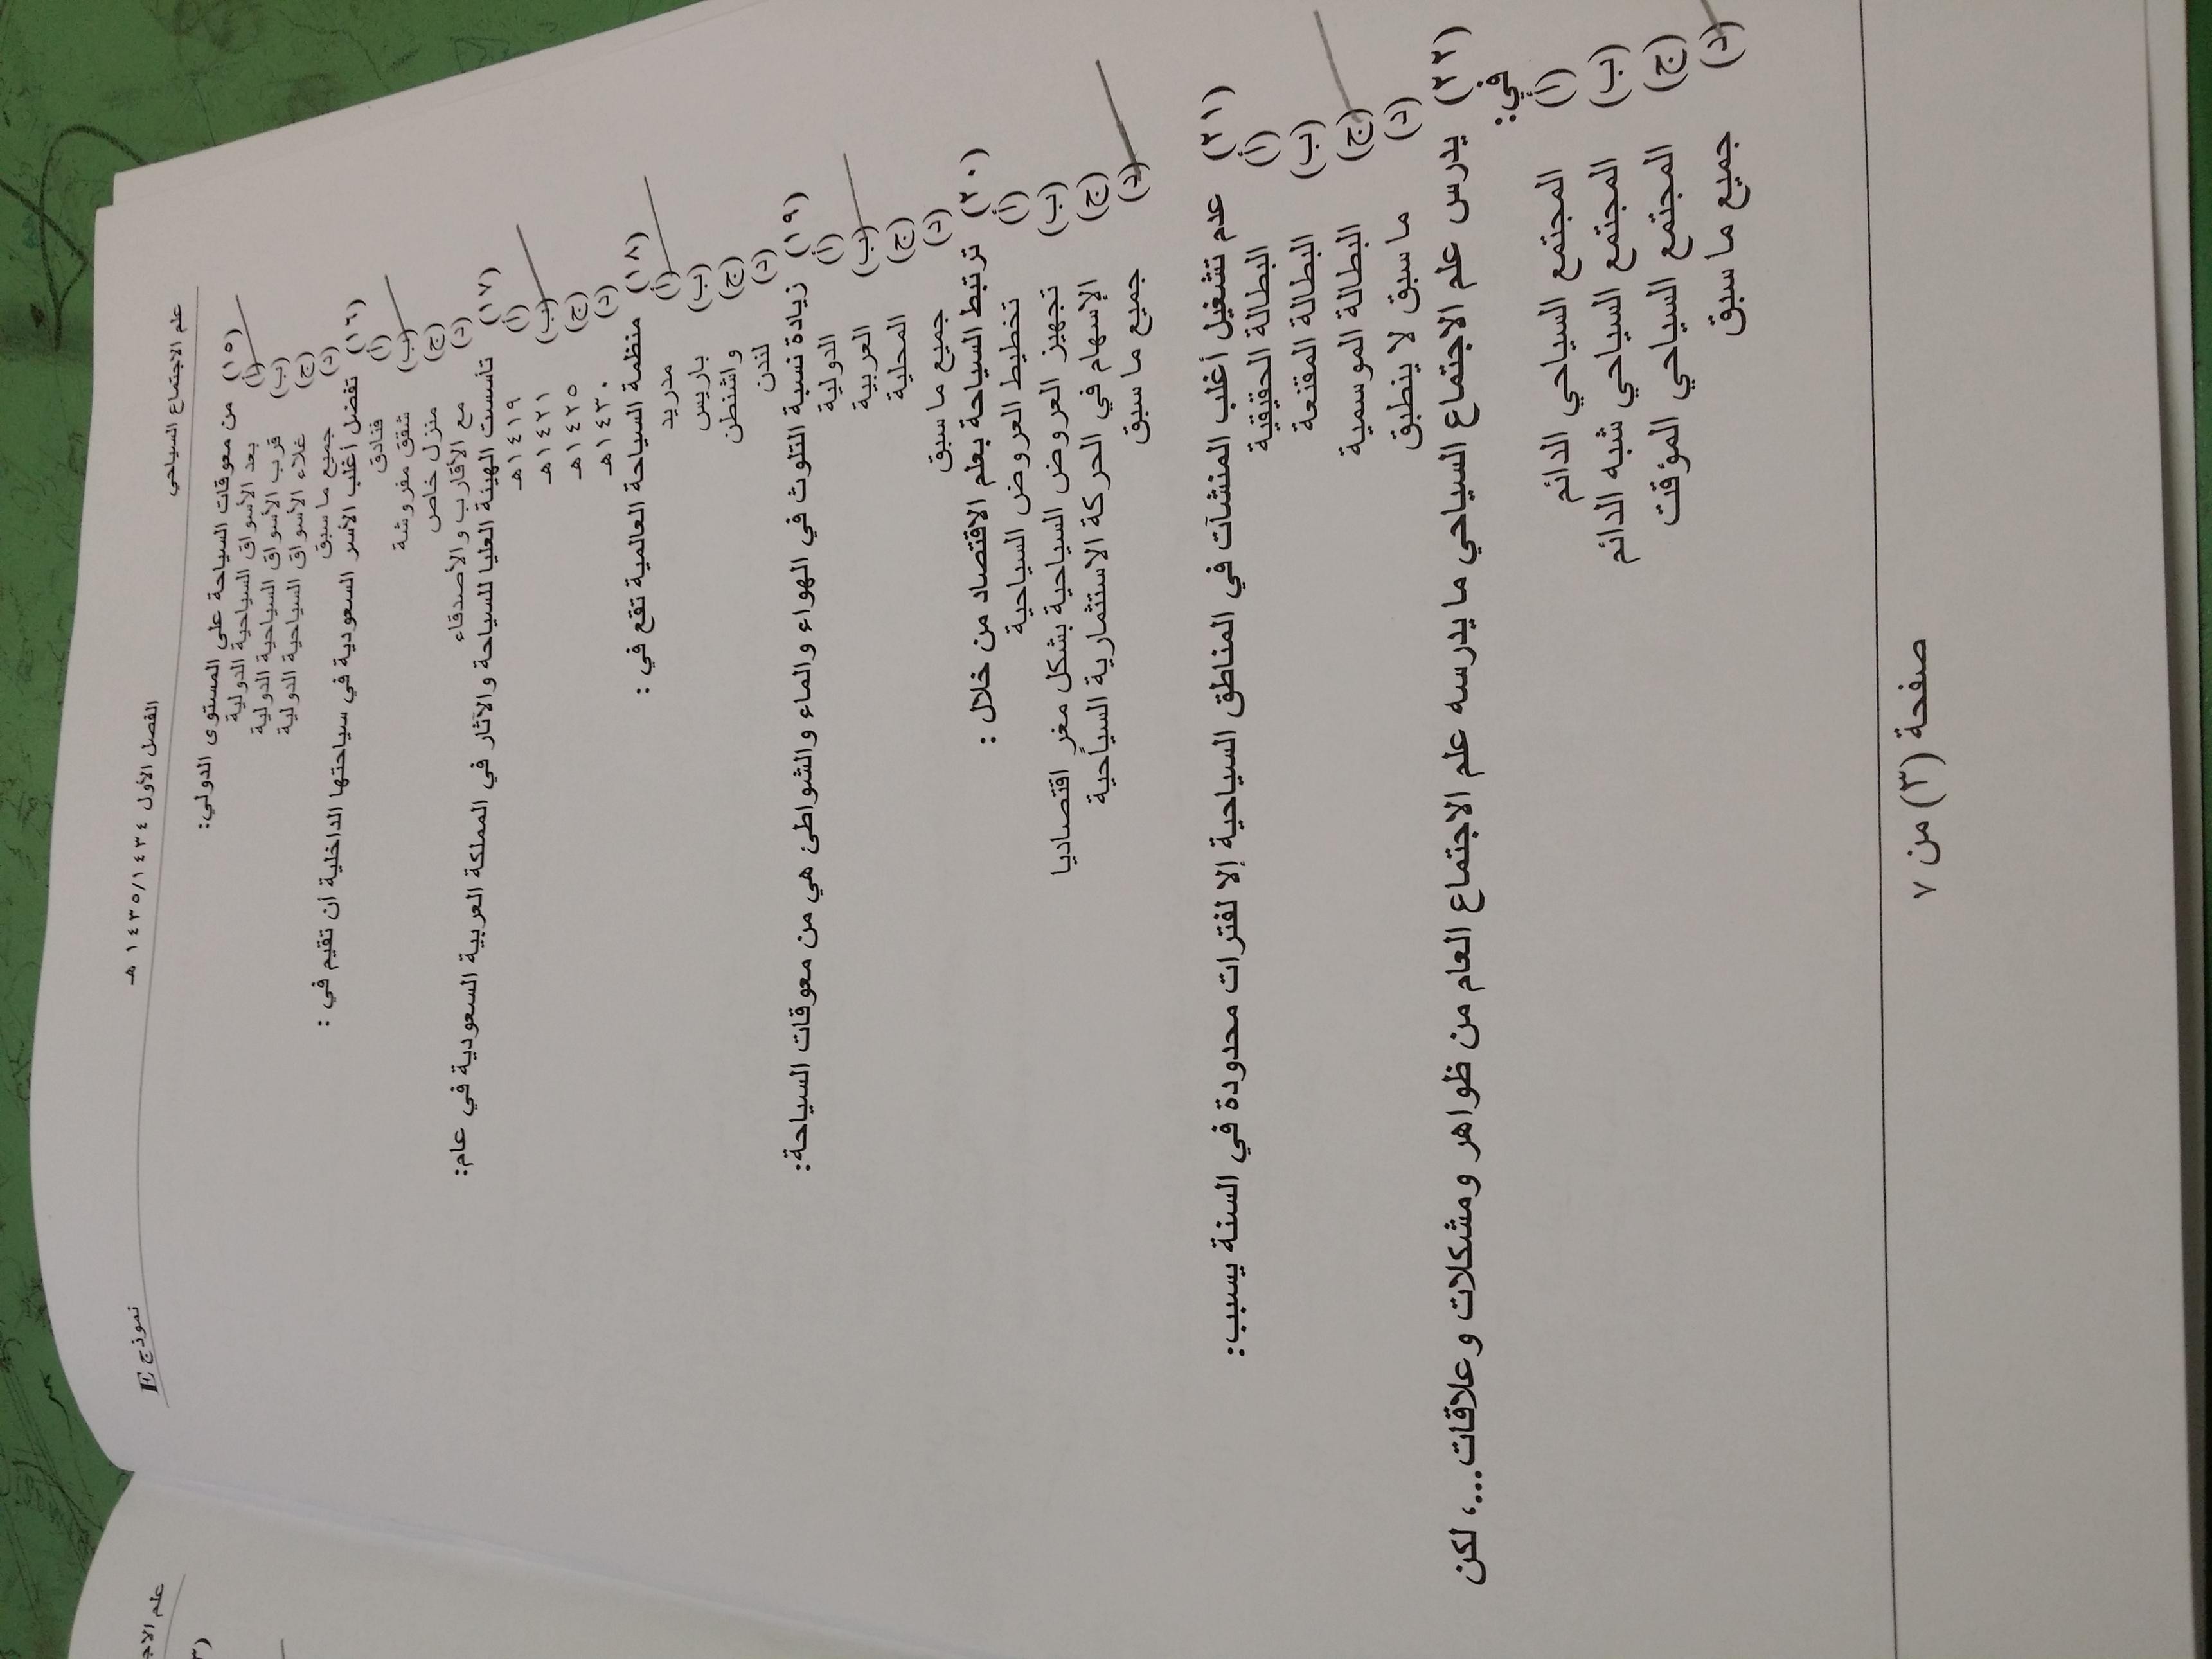 علم الاجتماع السياحي
الفصل الأول ١٤٣٥/١٤٣٤ هـ
نموذج E
(١٥) من معوقات السياحة على المستوى الدولي:
(أ) بعد الأسواق السياحية الدولية
(ب) قرب الأسواق السياحية الدولية
(ج) غلاء الأسواق السياحية الدولية
(د) جميع ما سبق
(١٦) تفضل أغلب الأسر السعودية في سياحتها الداخلية أن تقيم في :
(أ) فنادق
(ب) شقق مفروشة
(ج) منزل خاص
(د) مع الأقارب والأصدقاء
(١٧) تأسست الهيئة العليا للسياحة والآثار في المملكة العربية السعودية في عام:
(أ) ١٤١٩هـ
(ب) ١٤٢١هـ
(ج) ١٤٢٥هـ
(د) ١٤٣٠هـ
(١٨) منظمة السياحة العالمية تقع في :
(أ) مدريد
(ب) باريس
(ج) واشنطن
(د) لندن
(١٩) زيادة نسبة التلوث في الهواء والماء والشواطئ هي من معوقات السياحة:
(أ) الدولية
(ب) العربية
(ج) المحلية
(د) جميع ما سبق
(٢٠) ترتبط السياحة بعلم الاقتصاد من خلال :
(أ) تخطيط العروض السياحية
(ب) تجهيز العروض السياحية بشكل مغر اقتصاديا
(ج) الإسهام في الحركة الاستثمارية السياحية
(د) جميع ما سبق
(٢١) عدم تشغيل أغلب المنشآت في المناطق السياحية إلا لفترات محدودة في السنة يسبب:
(أ) البطالة الحقيقية
(ب) البطالة المقنعة
(ج) البطالة الموسمية
(د) ما سبق لا ينطبق
(٢٢) يدرس علم الاجتماع السياحي ما يدرسه علم الاجتماع العام من ظواهر ومشكلات وعلاقات...، لكن
في:
(أ) المجتمع السياحي الدائم
(ب) المجتمع السياحي شبه الدائم
(ج) المجتمع السياحي المؤقت
(د) جميع ما سبق
صفحة (٣) من ٧